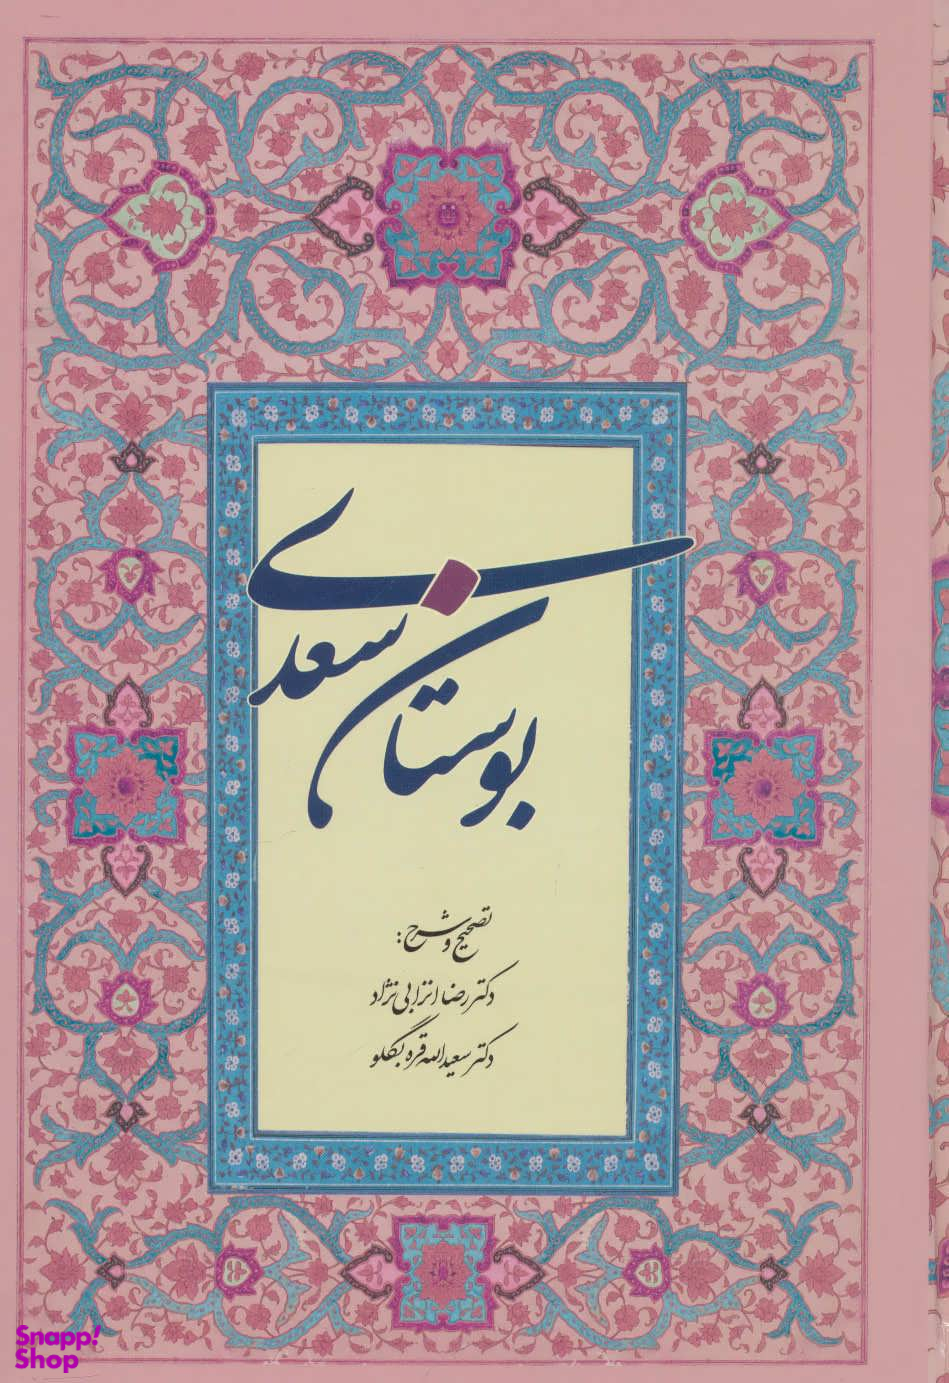 بوستان سعدی
تصحیح و شرح:
دکتر رضا انزابی نژاد
دکتر سعیدالله قره بگلو
Snapp!
Shop